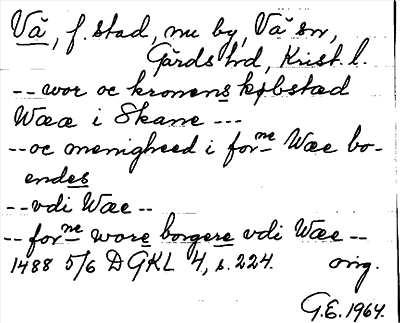 Vä, f. stad, nu by, Vä sn,
Gärds hd, Krist. l.
-- wor oc kronens købstæd
Wææ i Skane ---
-- oc menigheed i forne Wæe bo-
endes
-- vdi Wæe --
-- forne wore borgere vdi Wæe --
1488 5/6 DGKL 4, s. 224. orig.
G.E. 1964.